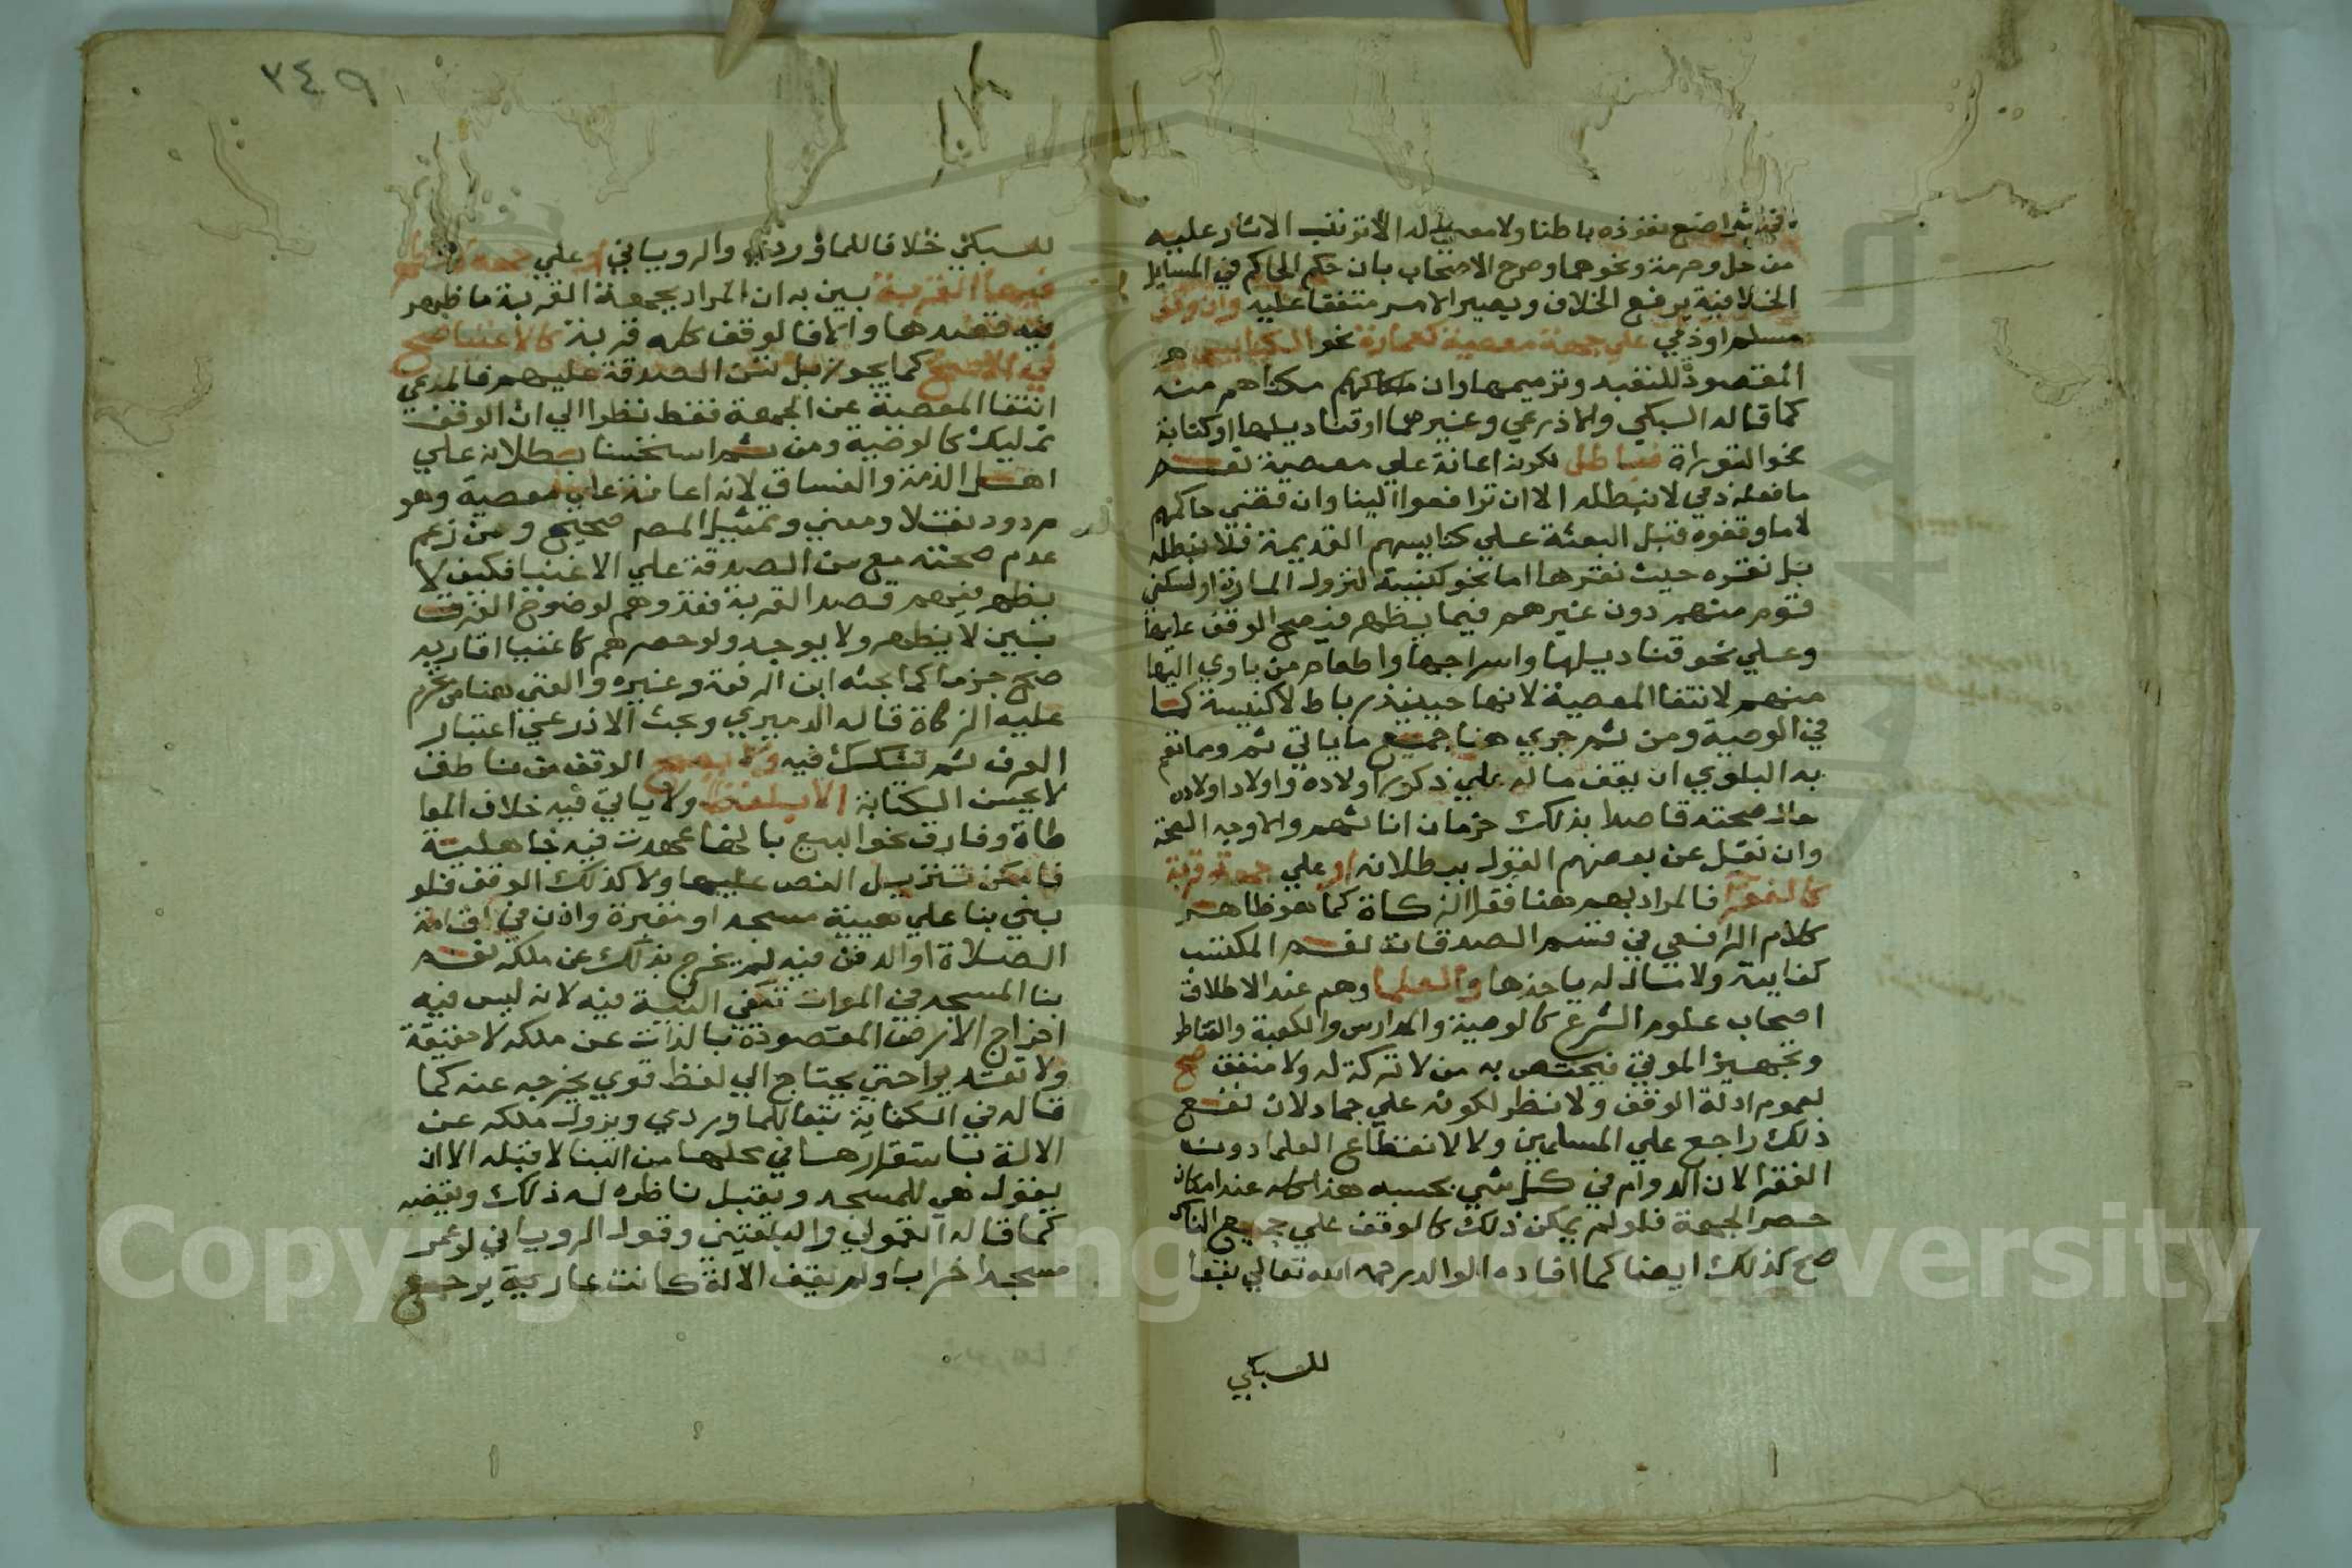 قد ثم اضع نفوذه باطنا ولا معني له الا ترتب الاثار عليه
من حل وحرمة ونحوهما وصرح الاصحاب بان حكم الحاكم في المسايل
الخلافية يرفع الخلاف ويصير الامر متفقا عليه وان وقف
مسلم او ذمي علي جهة معصية كعمارة نحو الكنايس
المقصودة للتعبد وترميمها وان مكناهم منه
كما قاله السبكي والاذرعي وغيرهما او قناديلها او كتابة
نحو التوراة فباطل لكونه اعانة علي معصية نعم
ما فعله ذمي لا نبطله الا ان ترافعوا الينا وان قضي حاكمهم
لا ما وقفوه قبل البعثة علي كنايسهم القديمة فلا نبطله
بل نقره حيث نقرها اما نحو كنيسة لنزول المارة او لسكني
قوم منهم دون غيرهم فيما يظهر فيصح الوقف عليها
وعلي نحو قناديلها واسراجها واطعام من ياوي اليها
منهم لانتفا المعصية لانها حينيذ رباط لا كنيسة كما
في الوصية ومن ثم جري هنا جميع ما ياتي ثم ومما تعم
به البلوي ان يقف ماله علي ذكور اولاده واولاد اولاده
حال صحته قاصدا بذلك حرمان اناثهم والاوجه الصحة
وان نقل عن بعضهم القول ببطلانه او علي جهة قربة
كالفقرا فالمراد بهم هنا فقرا الزكاة كما هو ظاهر
كلام الرافعي في قسم الصدقات نعم المكتسب
كفايته ولا مال له ياخذها والعلما وهم عند الاطلاق
اصحاب علوم الشرع كالوصية والمدارس والكعبة والقناطر
وتجهيز الموتي فيختص به من لا تركة له ولا منفق صح
لعموم ادلة الوقف ولا نظر لكونه علي جماد لان نفع
ذلك راجع علي المسلمين ولا لانقطاع العلما دون
الفقرا لان الدوام في كل شي بحسبه هذا كله عند امكان
حصر الجهة فلو لم يمكن ذلك كالوقف علي جميع الناس
صح كذلك ايضا كما افاده الوالد رحمه الله تعالي تبعا
للسبكي
٢٤٩
للسبكي خلافا للماوردي والروياني او علي جهة لا تظهر
فيها القربة بين به ان المراد بجهة القربة ما ظهر
فيه قصدها والا فالوقف كله قربة كالاغنيا صح
في الاصح كما يجوز بل تسن الصدقة عليهم فالمرعي
انتفا المعصية عن الجهة فقط نظرا الي ان الوقف
تمليك كالوصية ومن ثم استحسنا بطلانه علي
اهل الذمة والفساق لانه اعانة علي معصية وهو
مردود نقلا ومعني وتمثيل المص صحيح ومن زعم
عدم صحته مع سن الصدقة علي الاغنيا فكيف لا
يظهر فيهم قصد القربة فقد وهم لوضوح الفرق
بين لا يظهر ولا يوجد ولو حصرهم كاغنيا اقاربه
صح جزما كما بحثه ابن الرفعة وغيره والغني هنا من تحرم
عليه الزكاة قاله الدميري وبحث الاذرعي اعتبار
العرف ثم تشكك فيه ولا يصح الوقف من ناطق
لا يحسن الكتابة الا بلفظ ولا ياتي فيه خلاف المعا
طاة وفارق نحو البيع بانها عهدت فيه جاهلية
فامكن تنزيل النص عليها ولا كذلك الوقف فلو
بني بنا علي هيية مسجد او مقبرة واذن في اقامة
الصلاة او الدفن فيه لم يخرج بذلك عن ملكه نعم
بنا المسجد في الموات تكفي النية فيه لانه ليس فيه
اخراج الارض المقصودة بالذات عن ملكه لا حقيقة
ولا تقديرا حتي يحتاج الي لفظ قوي يخرجه عنه كما
قاله في الكفاية تبعا للماوردي ويزول ملكه عن
الالة باستقرارها في محلها من البنا لا قبله الا ان
يقول هي للمسجد ويقبل ناظره له ذلك ويقبضه
كما قاله القمولي والبلقيني وقول الروياني لو عمر
مسجدا خرابا ولم يقف الالة كانت عارية يرجع
Copyright © King Saud University